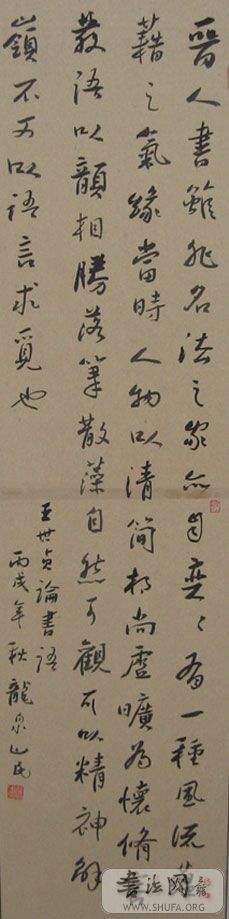 晉人書雖非名法之家亦自奕〻有一種風流蘊
藉之氣緣當時人物以清簡相尚虛曠為懷脩
發語以韻相勝落筆散藻自然可觀可以精神解
嶺不可以語言求覓也
王世貞論書語
丙戌年秋龍泉山民
書法网
WWW.SHUFA.ORG